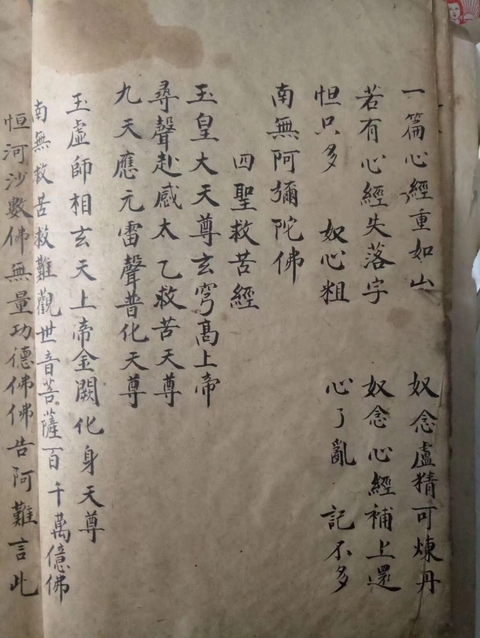 一篇心經重如山 奴念虛精可煉丹
若有心經失落字 奴念心經補上還
怛只多 奴心粗 心了亂 記不多
南無阿彌陀佛
四聖救苦經
玉皇大天尊玄穹高上帝
尋聲赴感太乙救苦天尊
九天應元雷聲普化天尊
玉虛師相玄天上帝金闕化身天尊
南無救苦救難觀世音菩薩百千萬億佛
恒河沙數佛無量功德佛佛告阿難言此